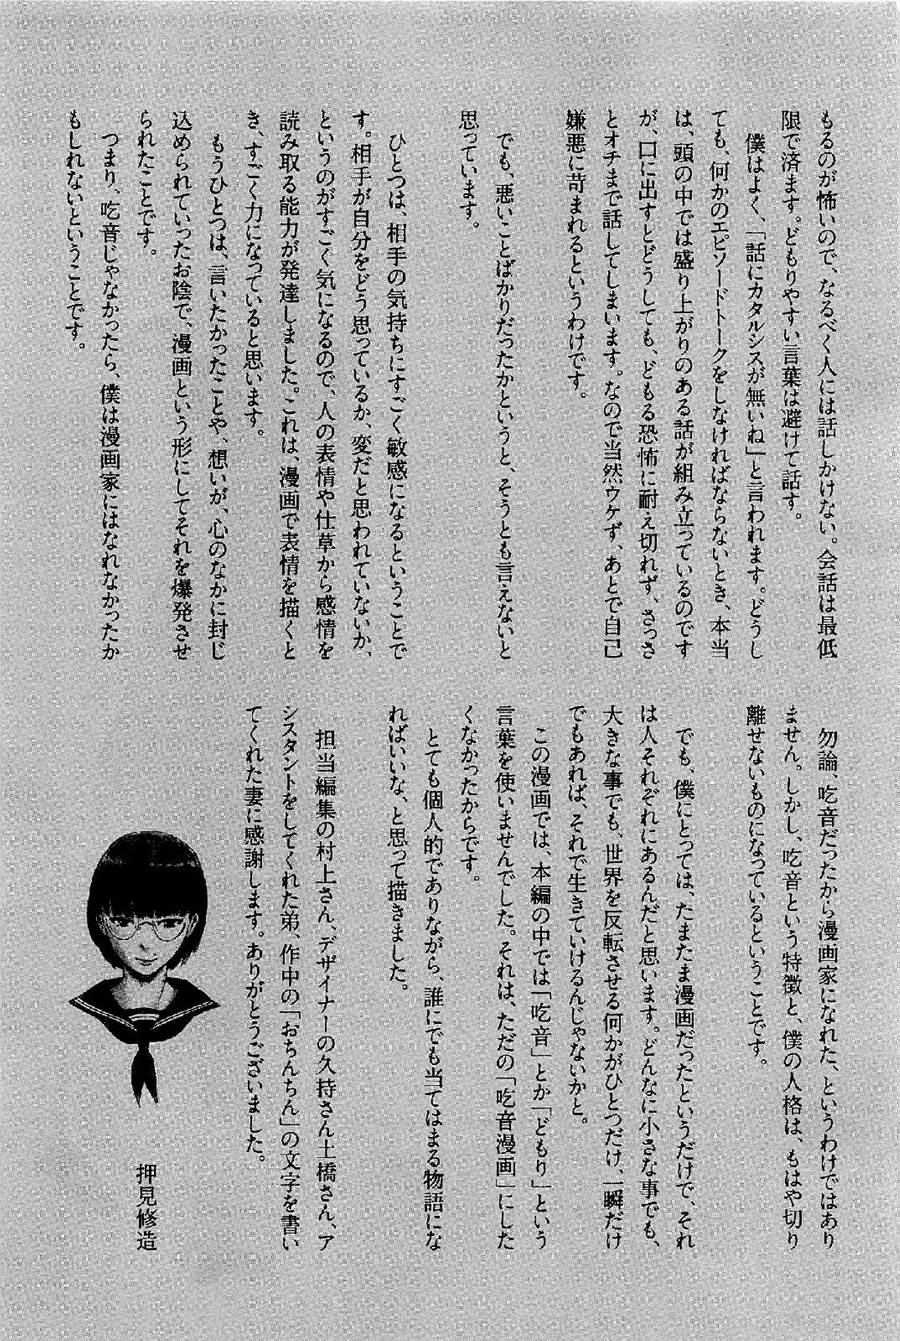 もるのが怖いので、なるべく人には話しかけない。会話は最低
限で済ます。どもりやすい言葉は避けて話す。
僕はよく、「話にカタルシスが無いね」と言われます。どうし
ても、何かのエピソードトークをしなければならないとき、本当
は、頭の中では盛り上がりのある話が組み立っているのです
が、口に出すとどうしても、どもる恐怖に耐え切れず、さっさ
とオチまで話してしまいます。なので当然ウケず、あとで自己
嫌悪に苛まれるというわけです。
でも、悪いことばかりだったかというと、そうとも言えないと
思っています。
ひとつは、相手の気持ちにすごく敏感になるということで
す。相手が自分をどう思っているか、変だと思われていないか、
というのがすごく気になるので、人の表情や仕草から感情を
読み取る能力が発達しました。これは、漫画で表情を描くと
き、すごく力になっていると思います。
もうひとつは、言いたかったことや、想いが、心のなかに封じ
込められていったお陰で、漫画という形にしてそれを爆発させ
られたことです。
つまり、吃音じゃなかったら、僕は漫画家にはなれなかったか
もしれないということです。
勿論、吃音だったから漫画家になれた、というわけではあり
ません。しかし、吃音という特徴と、僕の人格は、もはや切り
離せないものになっているということです。
でも、僕にとっては、たまたま漫画だったというだけで、それ
は人それぞれにあるんだと思います。どんなに小さな事でも、
大きな事でも、世界を反転させる何かがひとつだけ、一瞬だけ
でもあれば、それで生きていけるんじゃないかと。
この漫画では、本編の中では「吃音」とか「どもり」という
言葉を使いませんでした。それは、ただの「吃音漫画」にした
くなかったからです。
とても個人的でありながら、誰にでも当てはまる物語にな
ればいいな、と思って描きました。
担当編集の村上さん、デザイナーの久持さん土橋さん、ア
シスタントをしてくれた弟、作中の「おちんちん」の文字を書い
てくれた妻に感謝します。ありがとうございました。
押見修造